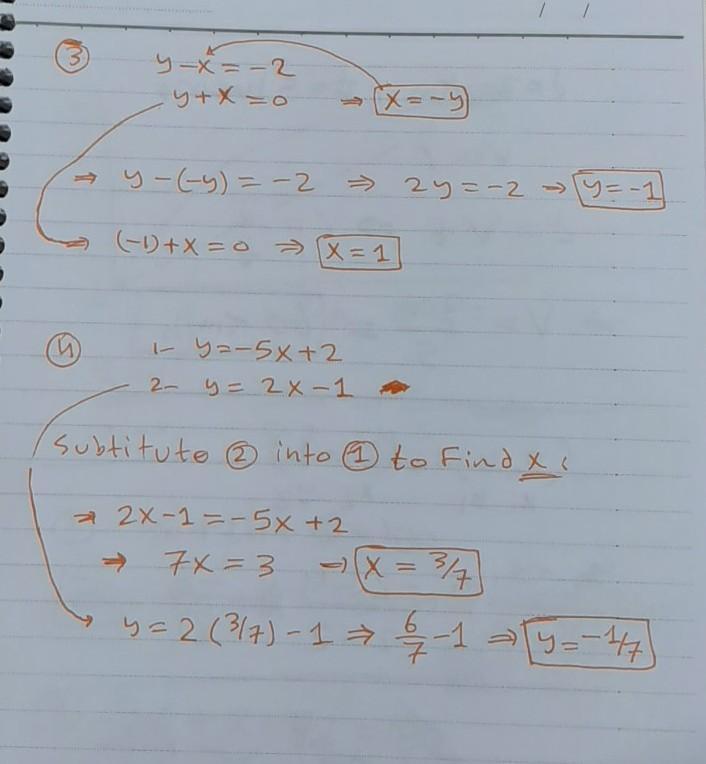 / /
③ y-x=-2
y+x=0 ⇒ x=-y
⇒ y-(-y)=-2 ⇒ 2y=-2 ⇒ y=-1
⇒ (-1)+x=0 ⇒ x=1
④ 1- y=-5x+2
2- y=2x-1
Subtitute ② into ① to Find x :
⇒ 2x-1=-5x+2
⇒ 7x=3 ⇒ x=3/7
y=2(3/7)-1 ⇒ 6/7-1 ⇒ y=-1/7